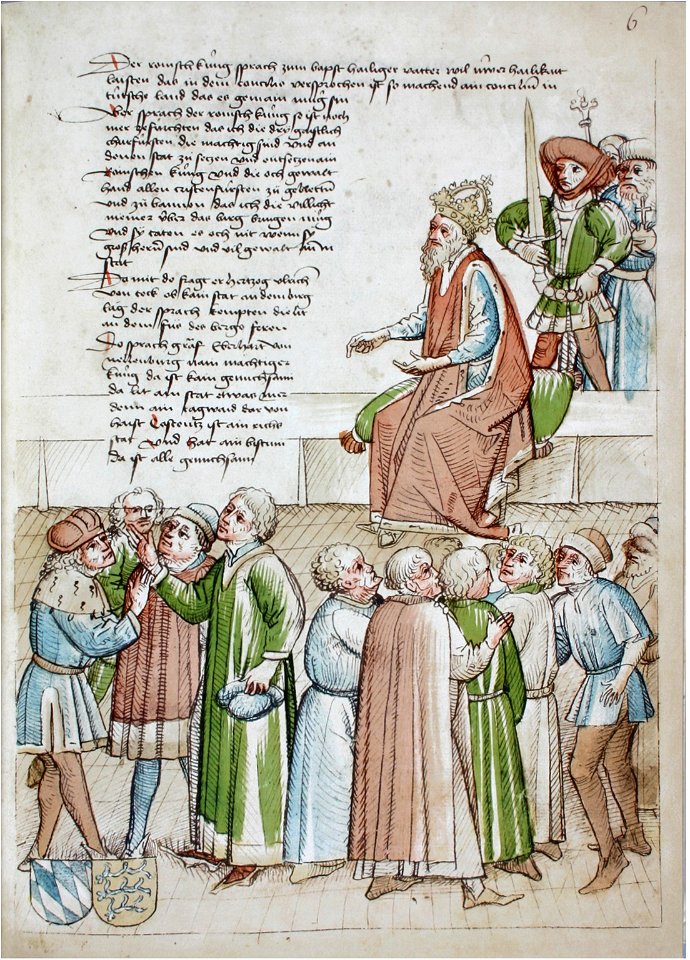 6
Der romisch kúng sprach zum bapst hailiger vatter wil úwer hailikait
laisten das in dem concilio versprochen ist so machend ain concilium in
tútsche land das es gemain múg sin
Aber sprach der romisch kúng so ist noch
mer ze fúrchten das ich die dry gaistlich
churfúrsten die mächtig sind und an
denen stat zu setzen und entsetzen ain
romschen kúng und die och gewalt
hand allen cristenfúrsten zu gebieten
und zu bannen das ich die villicht
úber das birg bringen múg
und sy taten es och nit wenn sy
groß herren sind und vil gewalt
stat
Da mit do fragt er hertzog ulrich
von teck ob kain stat an dem birg
lag der sprach kempten die lit
an dem fus des bergs feren
Do sprach graf Eberhart von
nellenburg mächtiger
kúng da ist kain gnuchsami
da lit ain stat etwas
denn ain tagwaid dar von
haist Costentz ist ain richs
stat und hat ain bistum
da ist alle gnuchsami